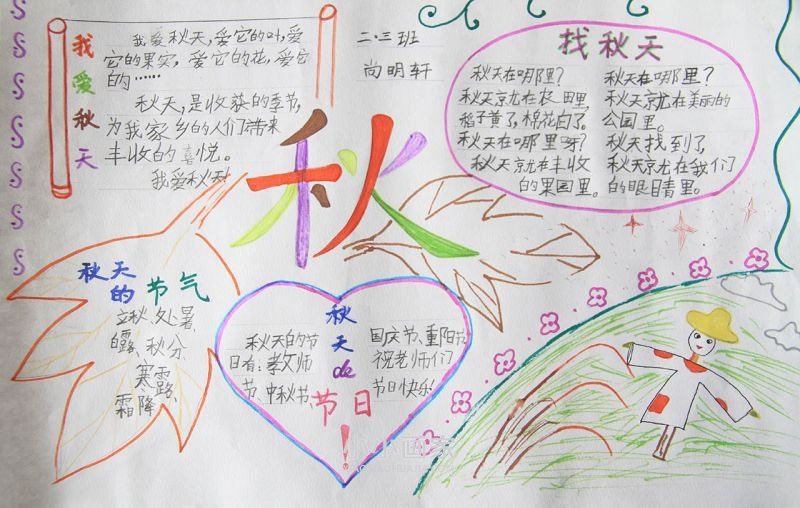 我爱秋天
我爱秋天，爱它的叶，爱
它的果实，爱它的花，爱它
的……
秋天，是收获的季节，
为我家乡的人们带来
丰收的喜悦。
我爱秋天！
二·三班
尚明轩
秋
找秋天
秋天在哪里？
秋天就在田里，
稻子黄了，棉花白了。
秋天在哪里呀？
秋天就在丰收
的果园里。
秋天在哪里？
秋天就在美丽的
公园里。
秋天找到了
秋天就在我们
的眼睛里。
秋天
的节气
立秋、处暑、
白露、秋分、
寒露、
霜降、
秋天de节日！
秋天的节
日有：教师
节、中秋节、
国庆节、重阳节
祝老师们
节日快乐！
小画家